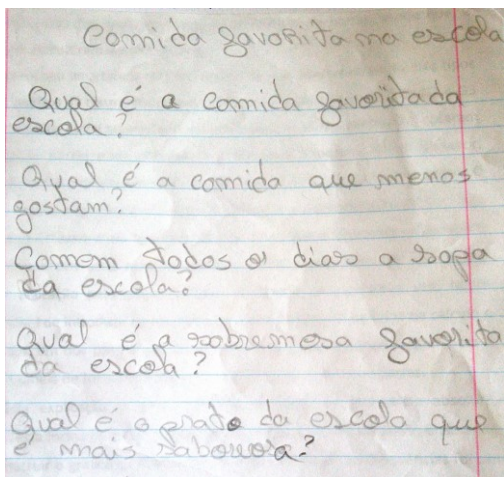 Comida favorita na escola
Qual é a comida favorita da
escola?
Qual é a comida que menos
gostam?
Comem todos os dias a sopa
da escola?
Qual é a sobremesa favorita
da escola?
Qual é o prato da escola que
é mais saborosa?